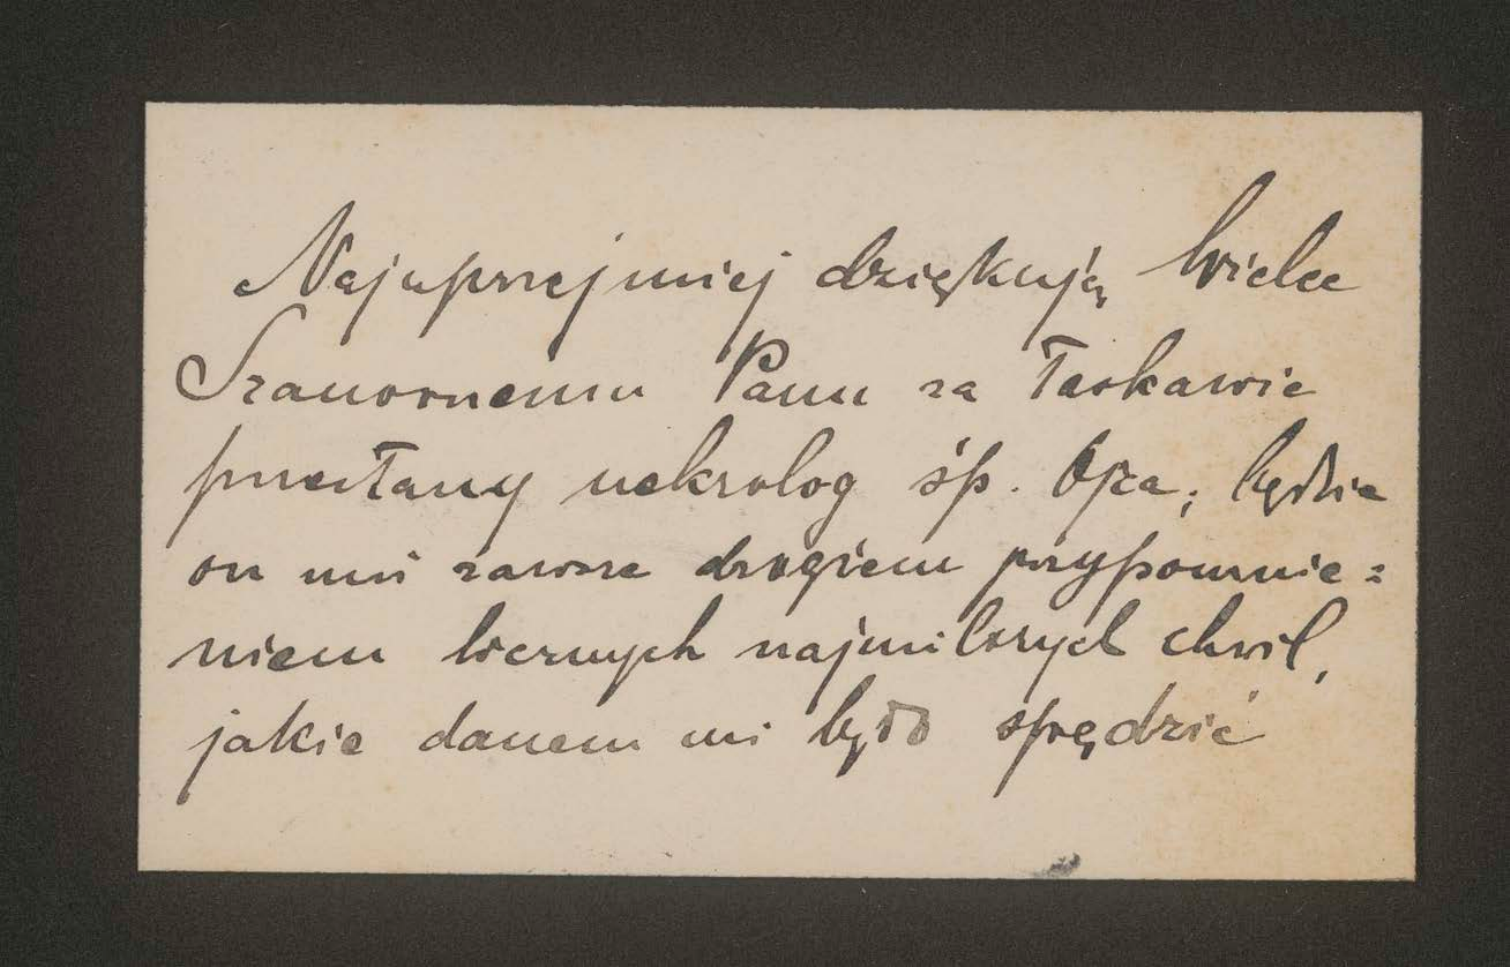 Najuprzejmiej dziękuję Wielce
Szanownemu Panu za łaskawie
przesłany nekrolog śp. Ojca; będzie
on mi zawsze drogiem przypomnie=
niem licznych najmilszych chwil,
jakie danem mi było spędzić